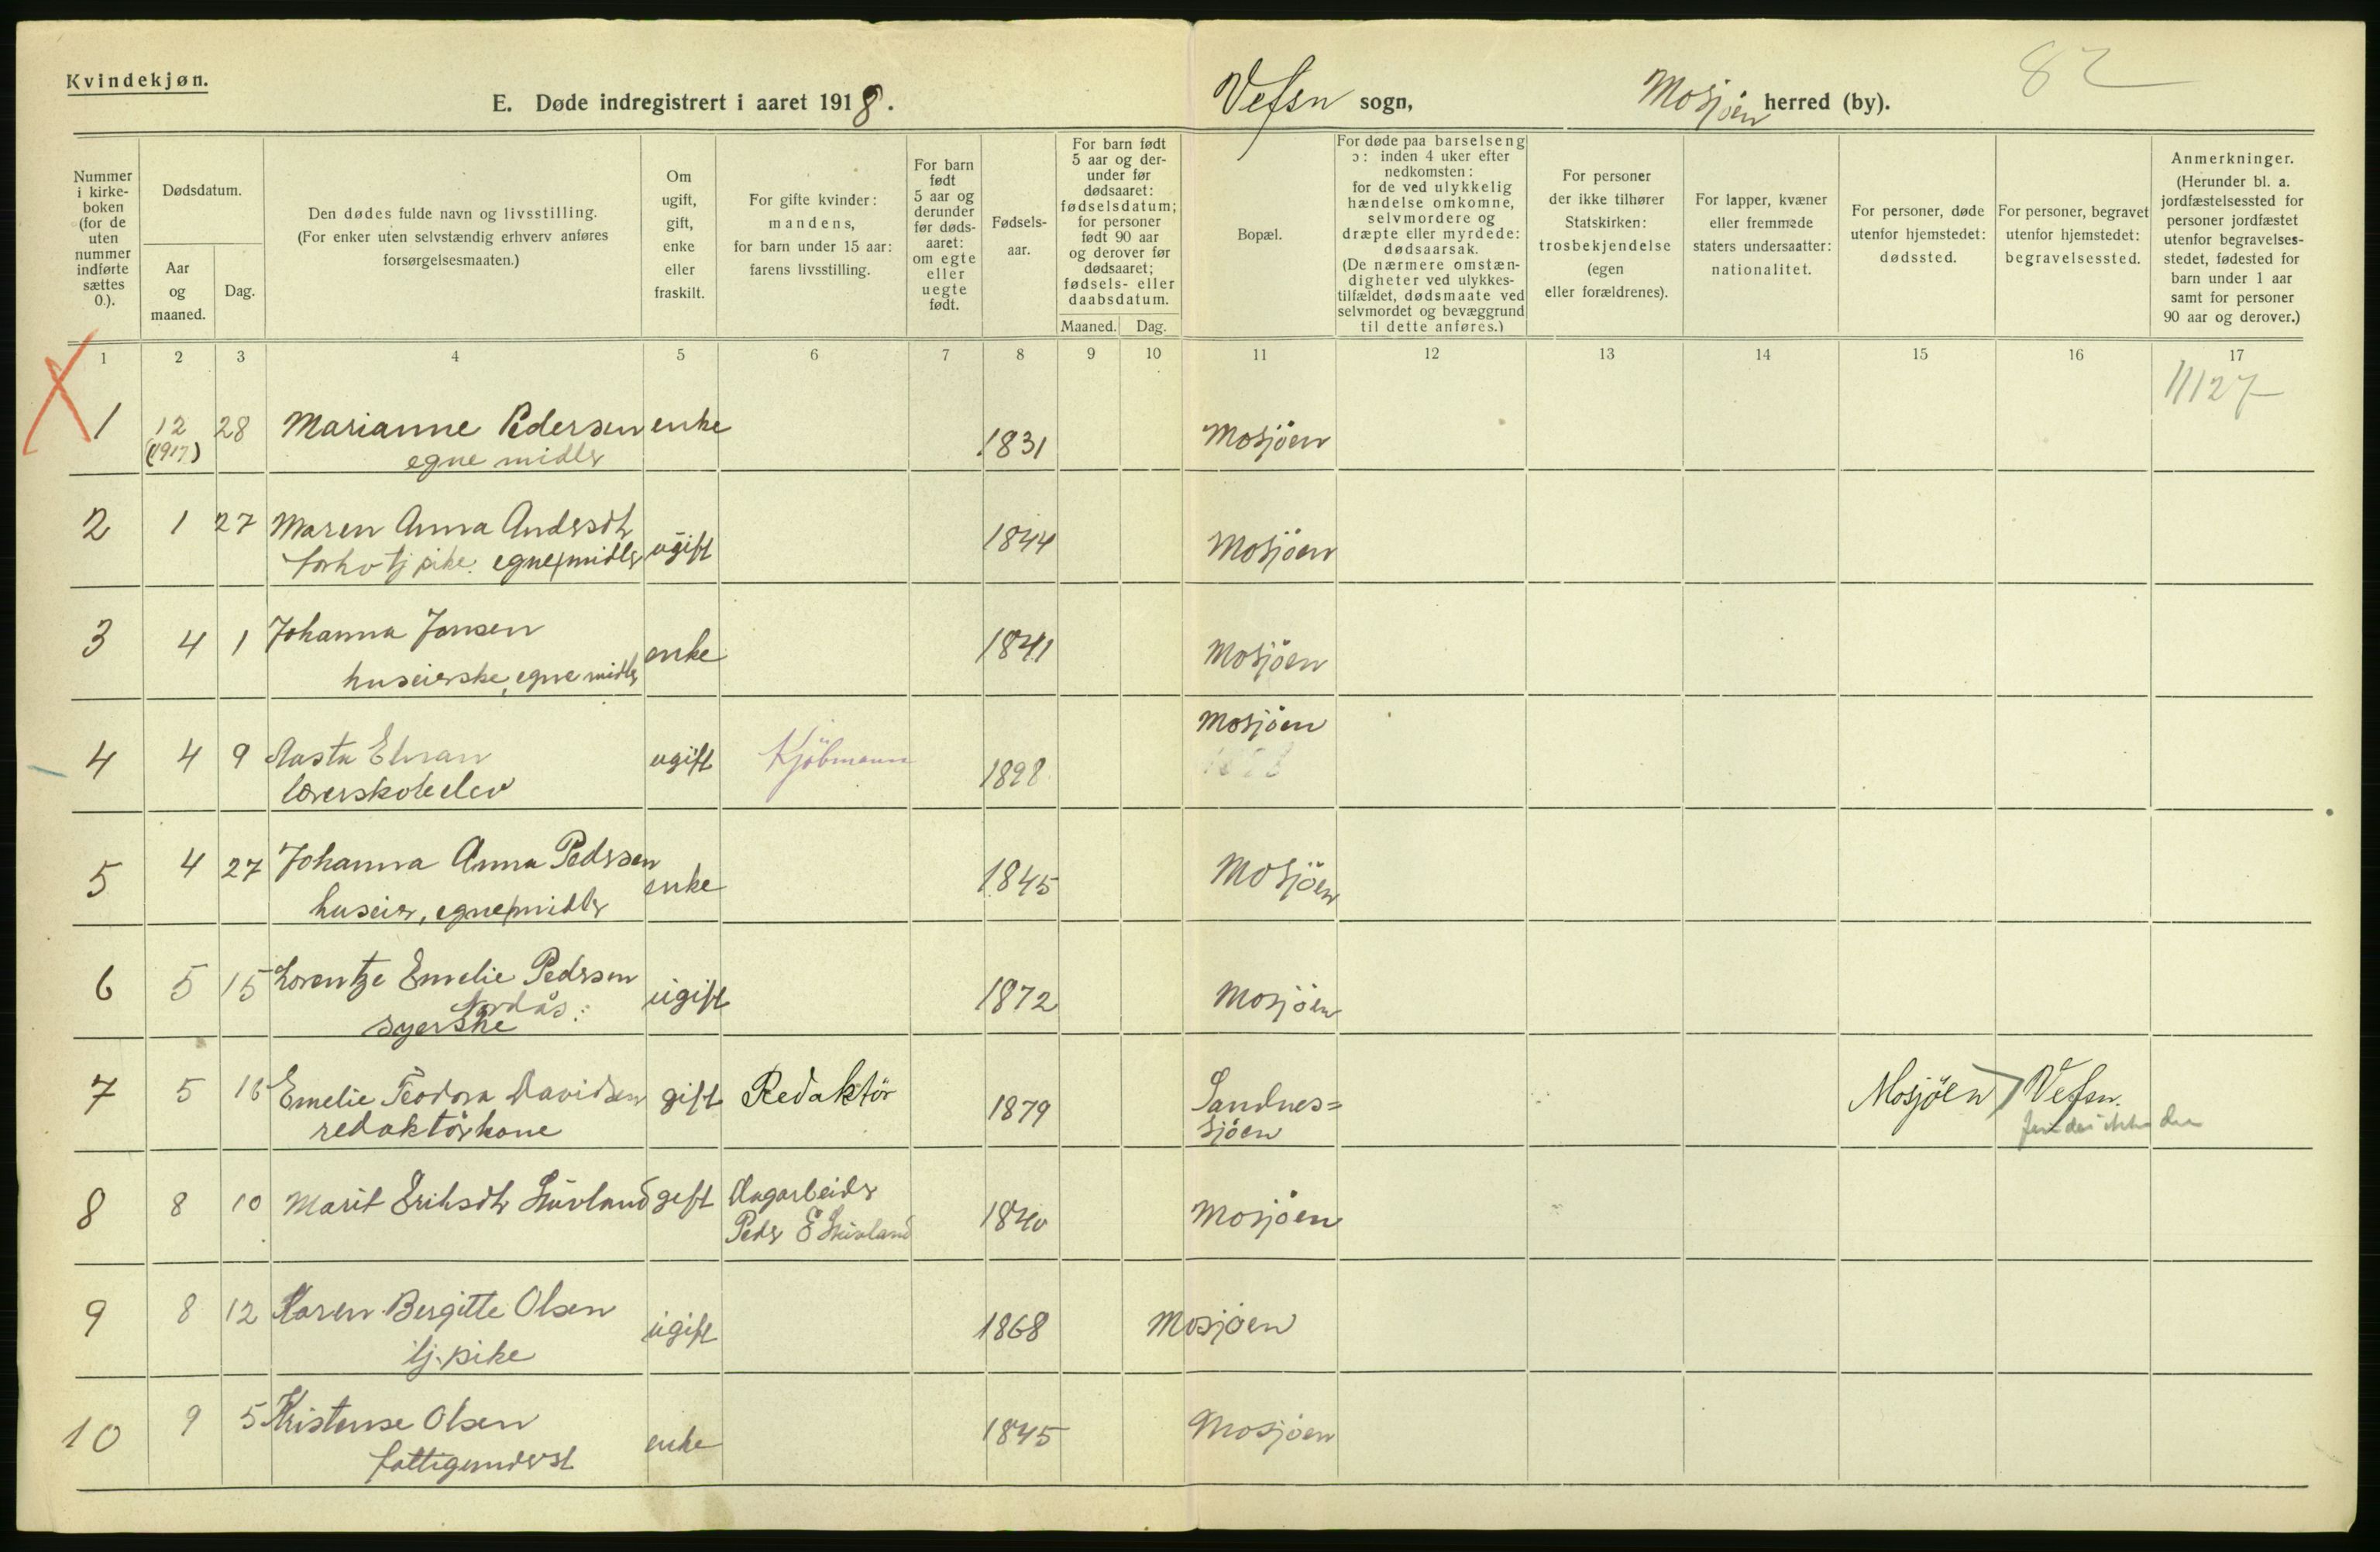 Kvindekjøn.
E. Døde indregistrert i aaret 1918.
Vefsn sogn,
Mosjøen herred (by).
82
Nummer
i kirke-
boken
(for de
uten
nummer
indførte
sættes
0.).
Dødsdatum.
Aar
og
maaned.
Dag.
Den dødes fulde navn og livsstilling.
(For enker uten selvstændig erhverv anføres
forsørgelsesmaaten.)
Om
ugift,
gift,
enke
eller
fraskilt.
For gifte kvinder:
mandens,
for barn under 15 aar:
farens livsstilling.
For barn
født
5 aar og
derunder
før døds-
aaret:
om egte
eller
uegte
født.
Fødsels-
aar.
For barn født
5 aar og der-
under før
dødsaaret:
fødselsdatum;
for personer
født 90 aar
og derover før
dødsaaret;
fødsels- eller
daabsdatum.
Maaned. Dag.
Bopæl.
For døde paa barselseng
ɔ: inden 4 uker efter
nedkomsten:
for de ved ulykkelig
hændelse omkomne,
selvmordere og
dræpte eller myrdede:
dødsaarsak.
(De nærmere omstæn-
digheter ved ulykkes-
tilfældet, dødsmaate ved
selvmordet og bevæggrund
til dette anføres.)
For personer
der ikke tilhører
Statskirken:
trosbekjendelse
(egen
eller forældrenes).
For lapper, kvæner
eller fremmede
staters undersaatter:
nationalitet.
For personer, døde
utenfor hjemstedet:
dødssted.
For personer, begravet
utenfor hjemstedet:
begravelsessted.
Anmerkninger.
(Herunder bl. a.
jordfæstelsessted for
personer jordfæstet
utenfor begravelses-
stedet, fødested for
barn under 1 aar
samt for personer
90 aar og derover.)
1 2 3 4 5 6 7 8 9 10 11 12 13 14 15 16 17
11127
1 12 28 Marianne Pedersen enke 1831 Mosjöen
(1917) egne midler
2 1 27 Maren Anna Andersdtr ugift 1844 Mosjöen
forhv tj pike. egne midler
3 4 1 Johanna Jansen enke 1841 Mosjöen
huseierske, egne midler
4 4 9 Aasta ugift Kjöbmann 1898 Mosjöen
lærerskoleelev
5 4 27 Johanna Anna Pedersen enke 1845 Mosjöen
huseier, egne midler
6 5 15 Lorentze Emelie Pedersen ugift 1872 Mosjöen
syerske
7 5 16 Emelie Teodora Davidsen gift Redaktör 1879 Sandnes=
sjöen Mosjöen Vefsn.
redaktörkone
8 8 10 Marit Eriksdtr gift Dagarbeider 1840 Mosjöen
Peder E
9 8 12 Karen Bergitte Olsen ugift 1868 Mosjöen
tj. pike
10 9 5 Kristense Olsen enke 1845 Mosjöen
fattigunderst